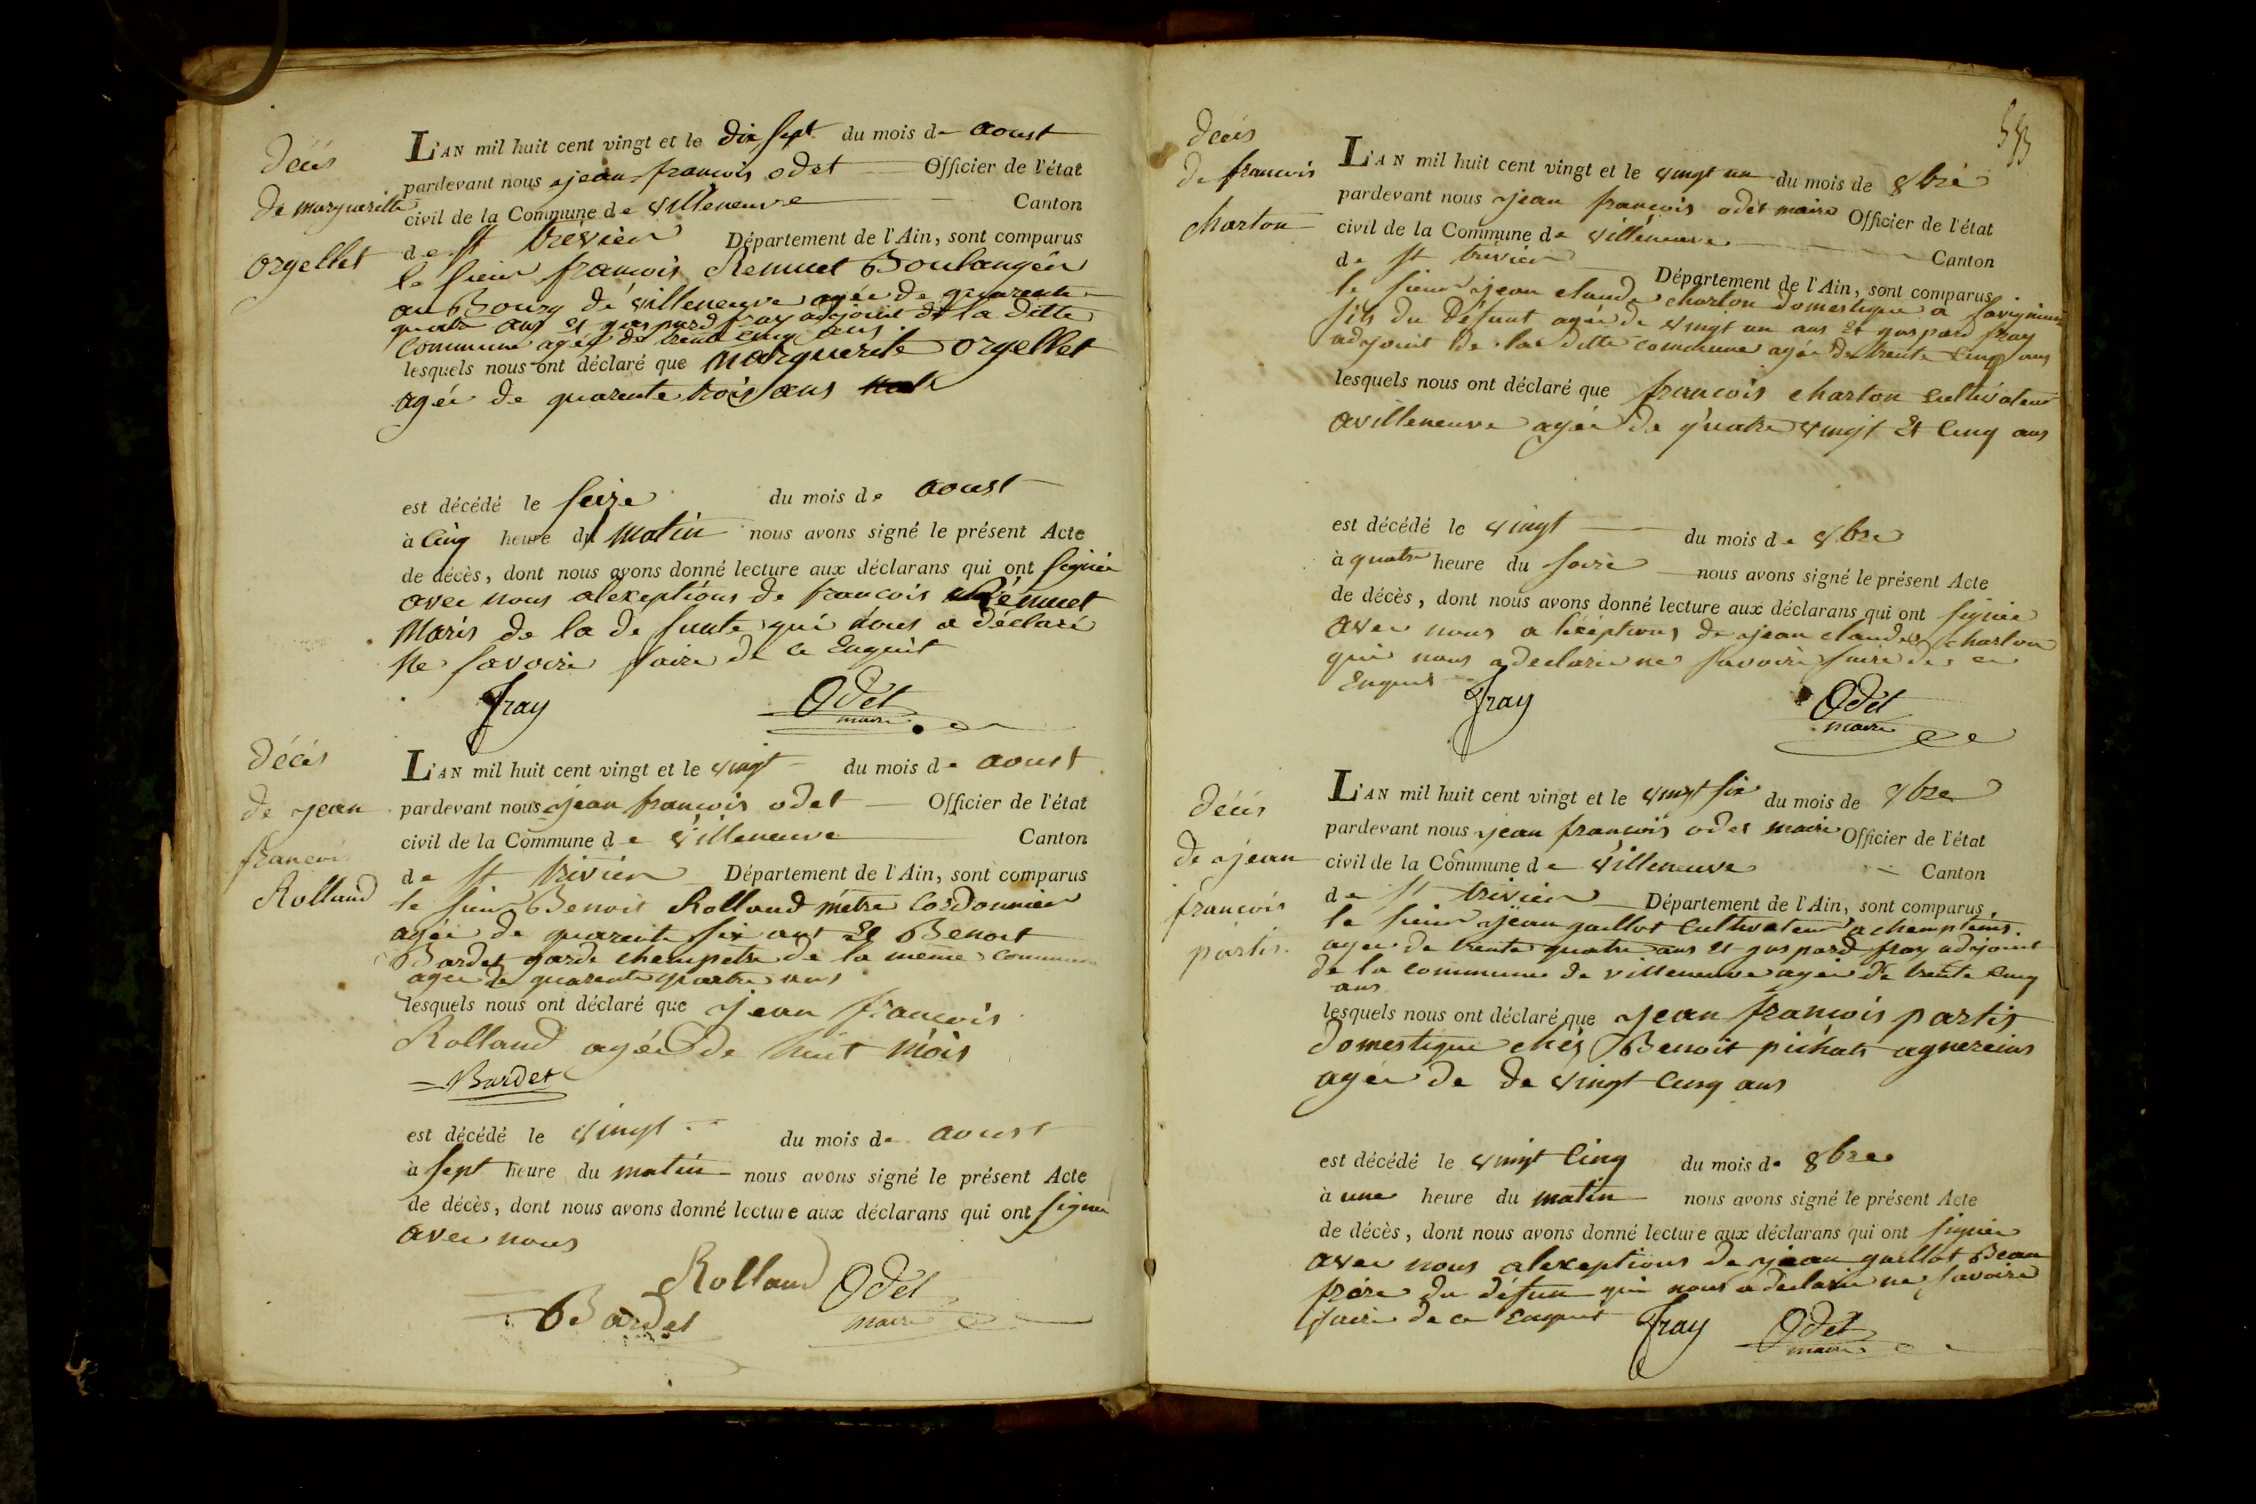 décés
de marguerille
orgellet
L'AN mil huit cent vingt et le dix sept du mois de aoust
pardevant nous jean francois odet Officier de l'état
civil de la Commune de villeneuve Canton
de st trévier Département de l'Ain, sont comparus
le sieur francois Remuet Boulangér
au Bourg de villeneuve agée de quarente
quatre ans et gaspard fray adjoint de la ditte
Commune agée de trente cinq ans
lesquels nous ont déclaré que marguerite orgellet
agée de quarente trois ans
est décédé le seize du mois de aoust
à cinq heure du matin nous avons signé le présent Acte
de décès, dont nous avons donné lecture aux déclarans qui ont signée
avec nous alexeptions de francois Rémuet
Maris de la de funte qui nous a déclaré
Ne savoire faire de ce Enquit
Fray Odet
maire
décés
de jean
francois
Rolland
L'AN mil huit cent vingt et le vingt du mois de aoust
pardevant nous jean francois odet Officier de l'état
civil de la Commune de villeneuve Canton
de st trivier Département de l'Ain, sont comparus
le sieur Benoit Rolland métre Cordonnier
agée de quarente six ans et Benoit
Bardet garde champetre de la méme commune
agée de quarente quatre ans
lesquels nous ont déclaré que jean francois
Rolland agée de huit mois
Bardet
est décédé le vingt du mois de aoust
à sept heure du matin nous avons signé le présent Acte
de décès, dont nous avons donné lecture aux déclarans qui ont signée
avec nous
Rolland Odet
Bardet maire
décés
de francois
charton
L'AN mil huit cent vingt et le vingt un du mois de 8bre
pardevant nous jean francois odet maire Officier de l'état
civil de la Commune de villeneuve Canton
de st trivier Département de l'Ain, sont comparus
le sieur jean claude charton domestique a
fils du défunt agée de vingt un ans et gaspard fray
adjoint de la ditte commune agée de trente cinq ans
lesquels nous ont déclaré que francois charton cultivateur
avilleneuve agée de quatre vingt et cinq ans
est décédé le vingt du mois de 8bre
à quatre heure du soire nous avons signé le présent Acte
de décès, dont nous avons donné lecture aux déclarans qui ont signée
avec nous a lexéptions de jean claude charton
qui nous a declarée ne savoire faire de ce
Enquis
Fray Odet
maire
décés
de jean
francois
partis
L'AN mil huit cent vingt et le vingt six du mois de 8bre
pardevant nous jean francois odet maire Officier de l'état
civil de la Commune de villeneuve Canton
de st trivier Département de l'Ain, sont comparus
le sieur jean gaillot cultivateur a
agée de trente quatre ans et gaspard fray adjoint
de la commune de villeneuve agée de trente cinq
ans
lesquels nous ont déclaré que jean francois partis
domestique chés Benoit pichat agnereins
agée de de vingt cinq ans
est décédé le vingt cinq du mois de 8bre
à une heure du matin nous avons signé le présent Acte
de décès, dont nous avons donné lecture aux déclarans qui ont signée
avec nous alexeptions de jean gaillot Beau
frére du défun qui nous a declarée ne savoire
faire de ce Enquit Fray Odet
maire